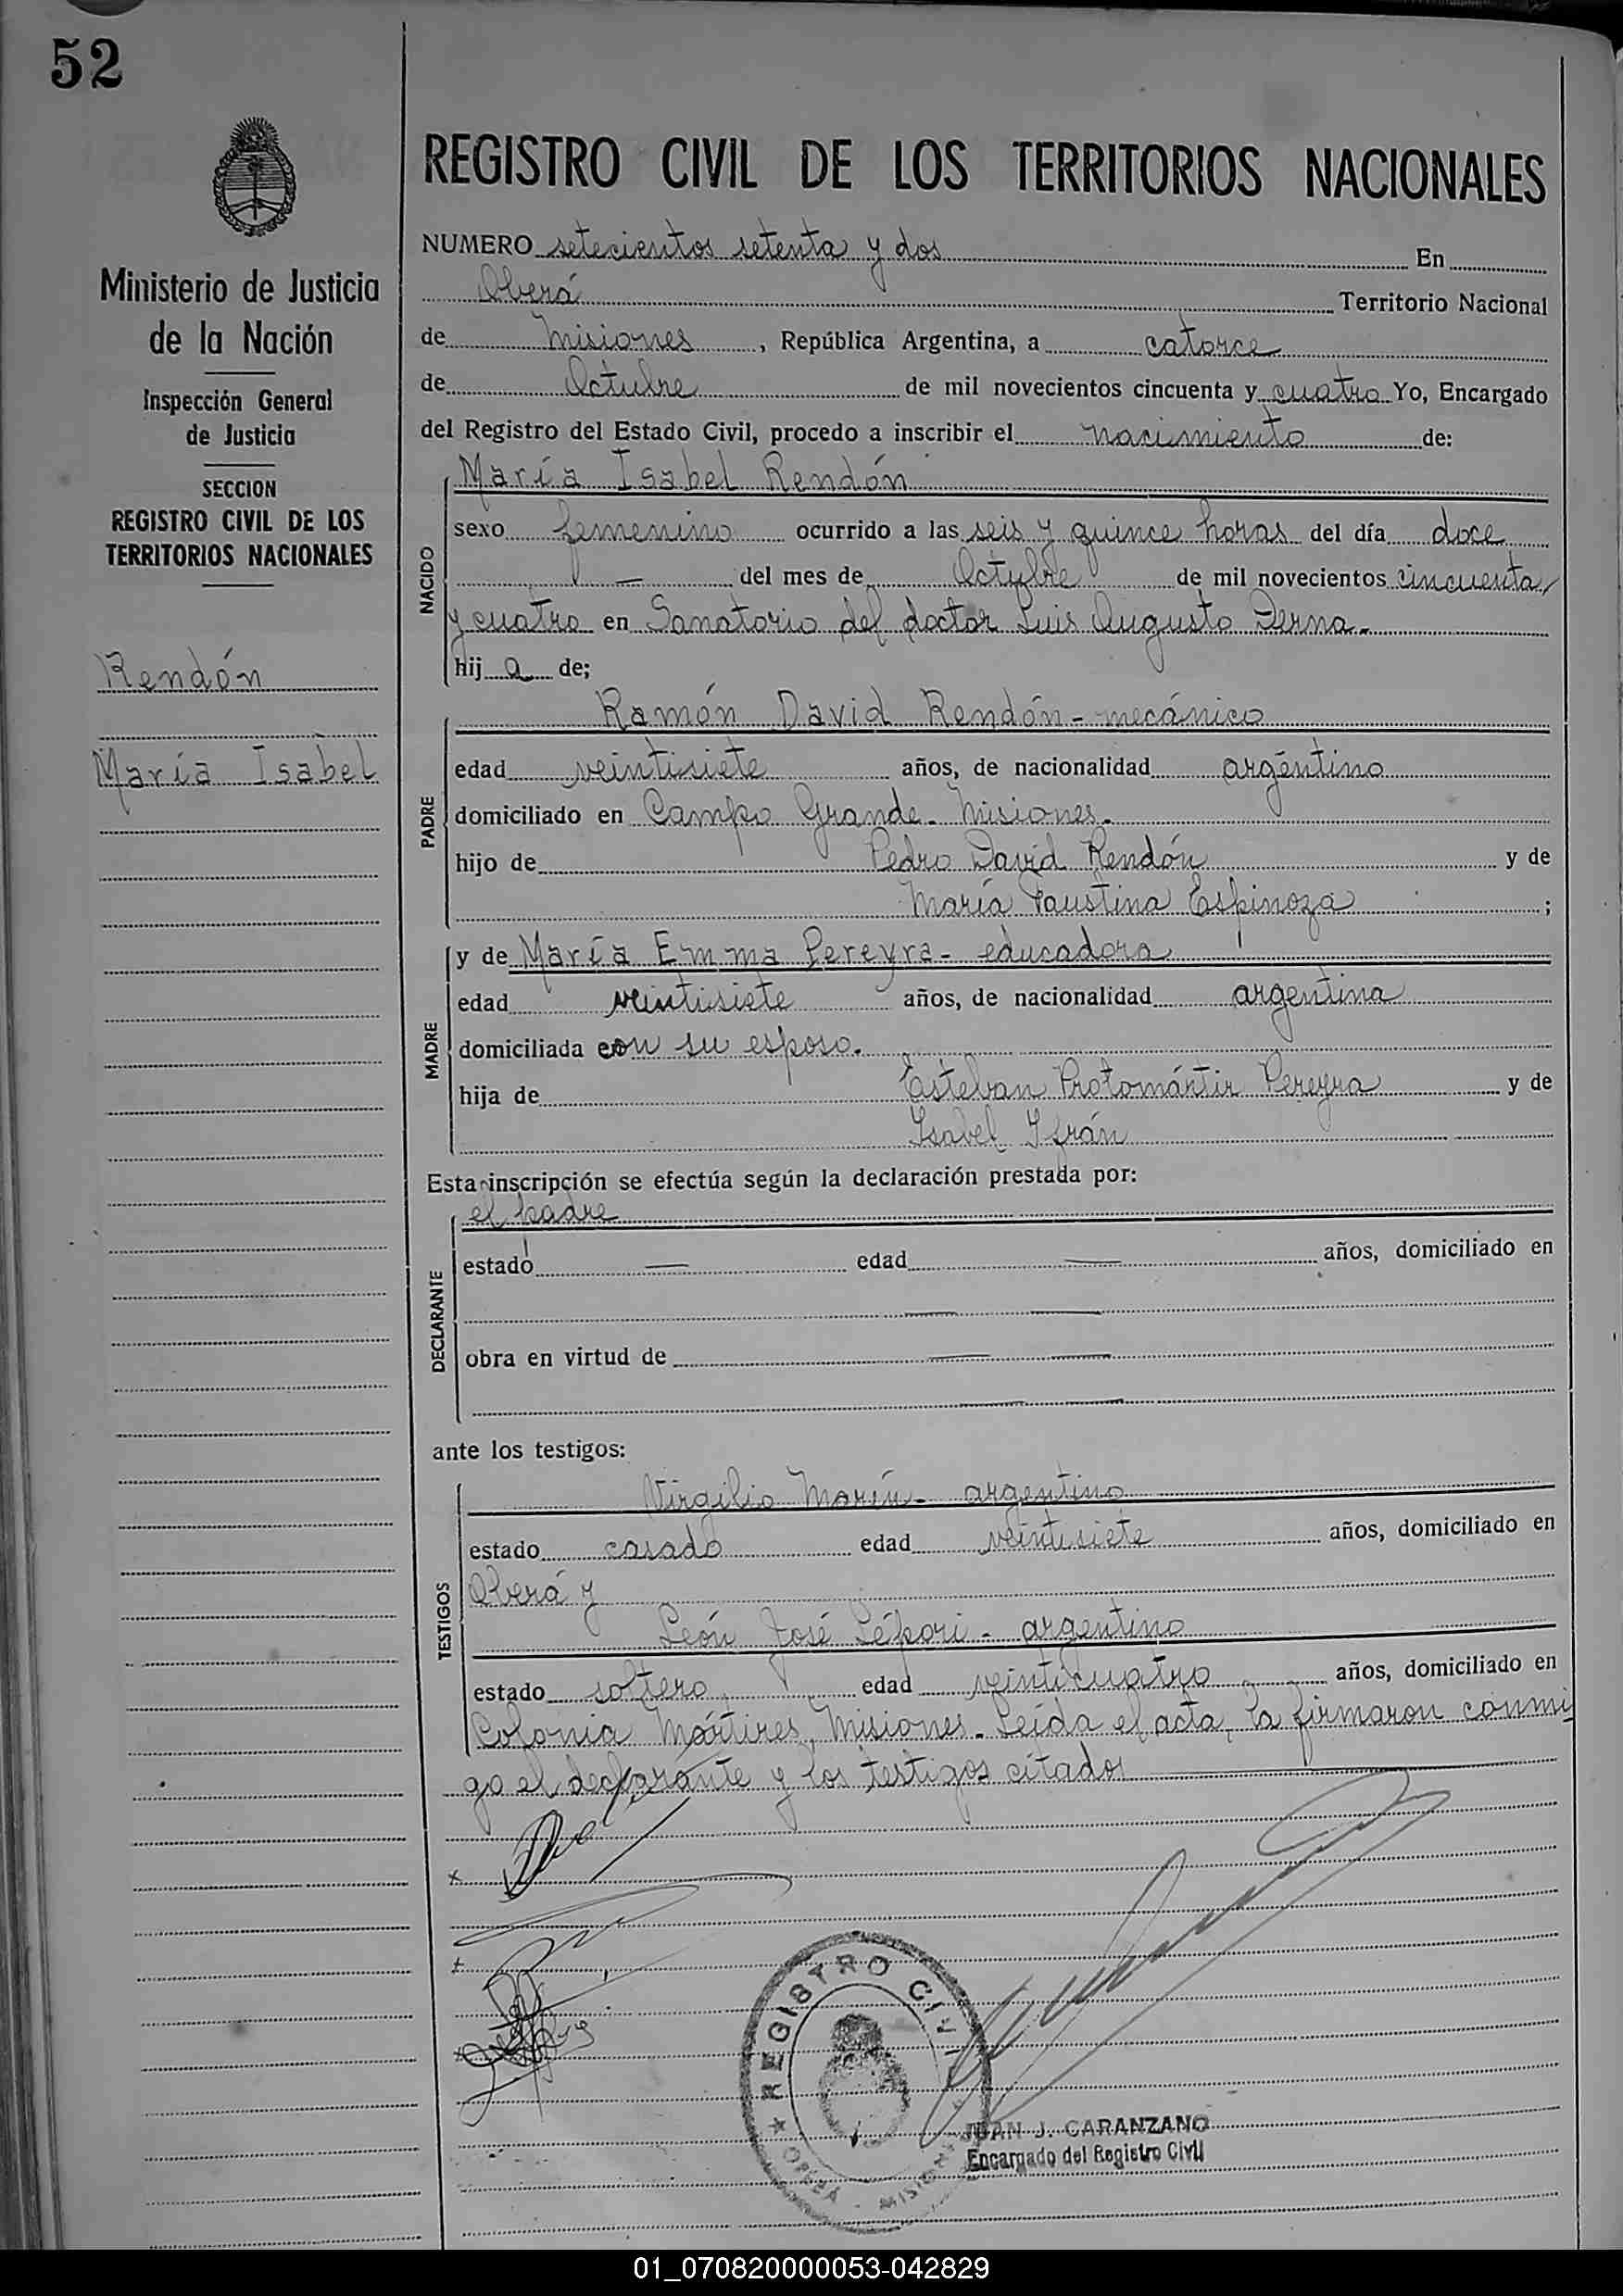 52
REGISTRO CIVIL DE LOS TERRITORIOS NACIONALES
Ministerio de Justicia
de la Nación
Inspección General
de Justicia
SECCION
REGISTRO CIVIL DE LOS
TERRITORIOS NACIONALES
Rendón
María Isabel
NUMERO setecientos setenta y dos En
Oberá Territorio Nacional
de Misiones, República Argentina, a catorce
de Octubre de mil novecientos cincuenta y cuatro Yo, Encargado
del Registro del Estado Civil, procedo a inscribir el nacimiento de:
NACIDO
María Isabel Rendón
sexo femenino ocurrido a las seis y quince horas del día doce
— del mes de Octubre de mil novecientos cincuenta
y cuatro en Sanatorio del doctor Luis Augusto Derna.
hij a de;
PADRE
Ramón David Rendón - mecánico
edad veintisiete años, de nacionalidad argentino
domiciliado en Campo Grande - Misiones.
hijo de Pedro David Rendón y de
María Faustina Espinoza ;
MADRE
y de María Emma Pereyra - educadora
edad veintisiete años, de nacionalidad argentina
domiciliada con su esposo.
hija de Esteban Protomártir Pereyra y de
Isabel Ifrán
Esta inscripción se efectúa según la declaración prestada por:
DECLARANTE
el padre
estado — edad — años, domiciliado en
— —
obra en virtud de — —
— —
ante los testigos:
TESTIGOS
Virgilio Marín - argentino
estado casado edad veintisiete años, domiciliado en
Oberá y
León José Lépori - argentino
estado soltero edad veinticuatro años, domiciliado en
Colonia Mártires, Misiones. Leída el acta, la firmaron conmi
go el declarante y los testigos citados
REGISTRO CIVIL
★ OBERÁ - MISIONES
JUAN J. CARANZANO
Encargado del Registro Civil
01_070820000053-042829